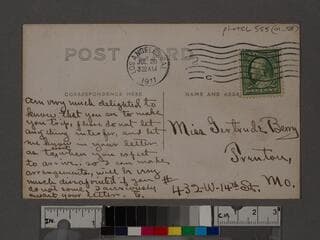 photCL 555 (
POST CARD
LOS ANGELES, CAL.
JUL 26
3 AM
1911
CORRESPONDENCE HERE
NAME AND ADDRESS
am very much delighted to
know that you are to make
your trip, please do not let
anything interfer, and let
me know in your letter
exactly
as to when you expect
to arrive, so I can make
arrangements, will be very
much dissapointed if you
do not come. Anxiously
await your letter. G.
Miss Gertrude Berry
Trenton,
Mo.
# 432-W-14th St.